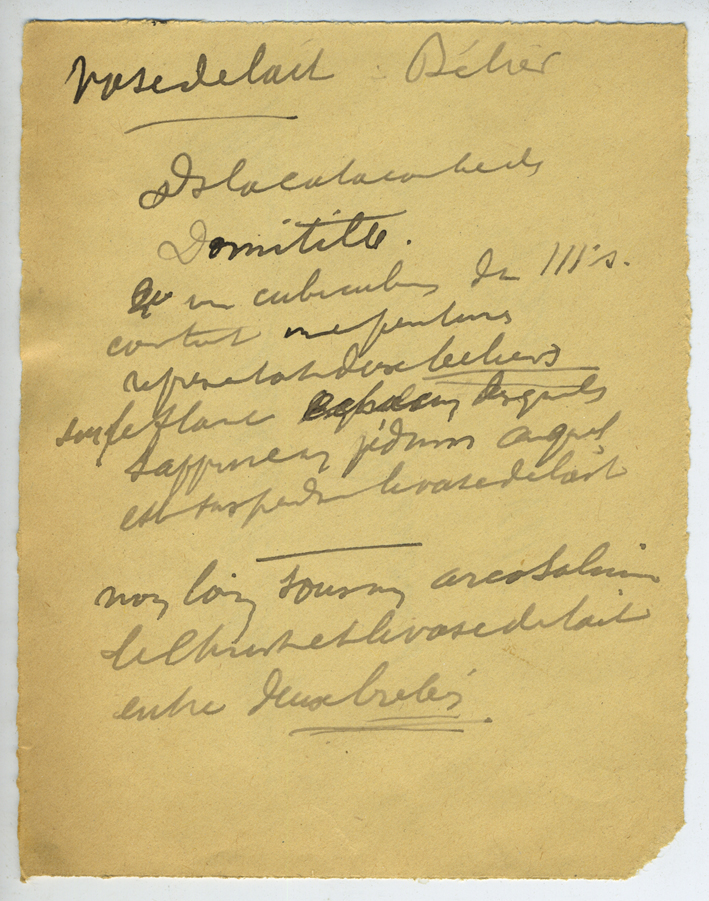 Vase de lait Bélier
Ds la catacombe de
Domitille.
un cubiculum du III s.
contient une peinture
représentant deux beliers
sur le flanc desquels
s'appuie un pedum auquel
est suspendu le vase de lait
non loin sous un arcosolium
le Christ et le vase de lait
entre deux brebis